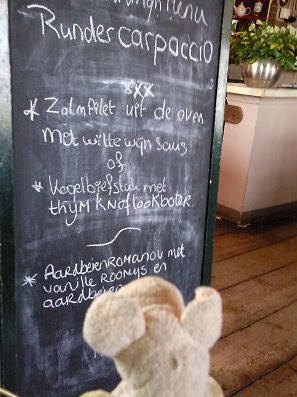 menu
Runder carpaccio
xxx
* Zalmfilet uit de oven
met witte wijn saus
of
* Kogelbiefstuk met
thijm knoflookboter
* Aardbeienromanov met
vanille roomys en
aardbeien